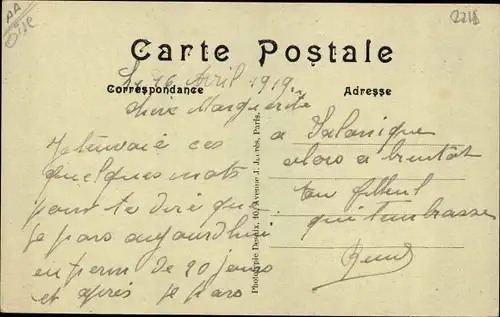 AA
Oise
2218
Carte Postale
Le 16 Avril 1919
Correspondance
Chère Marguerite
Je t'envoie ces
quelques mots
pour te dire que
je pars aujourd'hui
en perm de 20 jours
et après je pars
Phototypie Desaix, 10, Avenue J. Jaurès, Paris.
Adresse
a Salonique
alors a bientôt
ton
qui t'embrasse
René